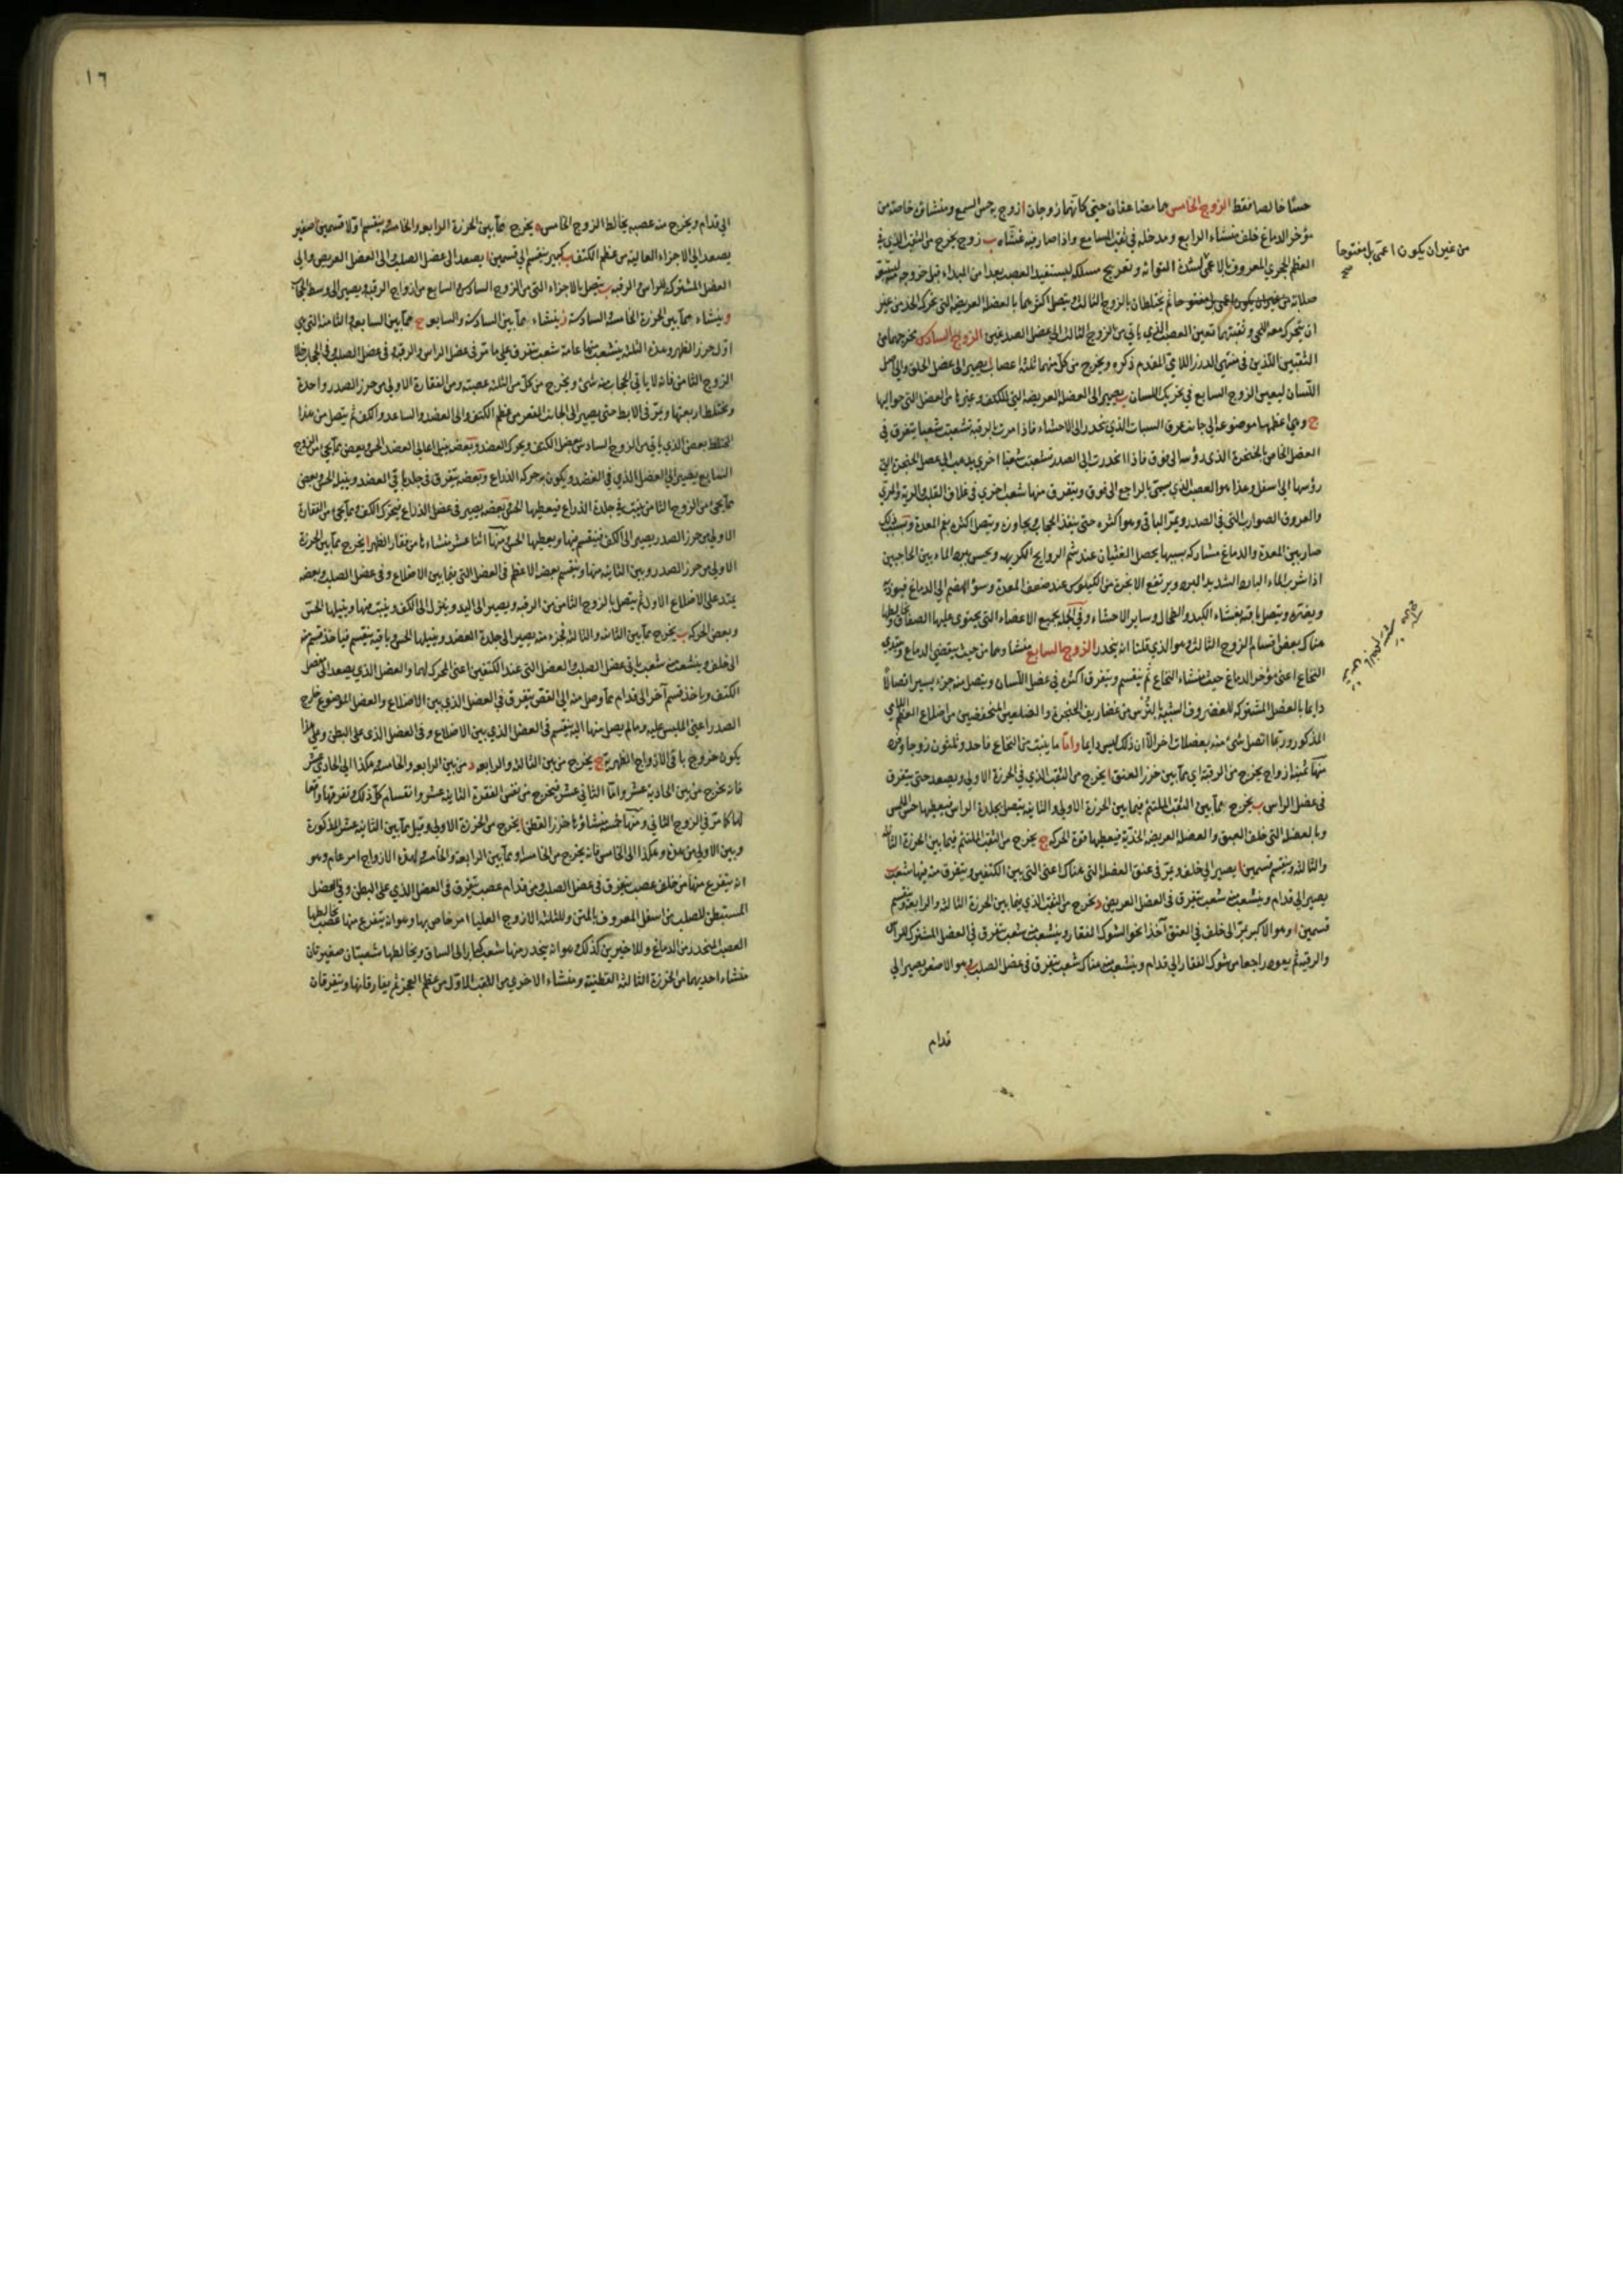 حسّا خالصا فقط الزوج الخامس هما مضاعفان حتى كانّهما زوجان ا زوج به حس السمع ومنشاؤه خاصة من
مؤخر الدماغ خلف منشاء الرابع ومدخله في ثقب المسامع واذا صار فيه غشّاه ب زوج يخرج من الثقب الذي في
العظم الحجري المعروف بالاعمى لشدة التوائه وتعريج مسلكه ليستفيد العصب بعدا من المبداء قبل خروجه
صلابة من غير ان يكون اعمى بل مفتوحا ثم يختلطان بالزوج الثالث ويتصل اكثرهما بالعضلة العريضة التي تحرك الخد من غير
ان يتحرك معه اللحى وبقيتهما تعين العصب الذي ياتي من الزوج الثالث الى عضل الصدغين الزوج السادس يخرجهما من
الثقبين اللذين في منتهى الدرز اللامي المقدم ذكره ويخرج من كل منهما ثلثة اعصاب ا يصير الى عضل الحلق والى اصل
اللسان ليعين الزوج السابع في تحريك اللسان ب يصير الى العضلة العريضة التي للكتف وغيرها من العضل التي حواليها
ج وهي اعظمها موضوعة الى جانب عرق السبات الذي ينحدر الى الاحشاء فاذا مرت بالرقبة تشعبت شعبا يتفرق في
العضل الخاص بالحنجرة الذي رؤسها الى فوق فاذا انحدرت الى الصدر تشعبت شعبا اخرى يذهب الى عضل الحنجرة التي
رؤسها الى اسفل وهذا هو العصب الذي يسمّى بالراجع الى فوق ويتفرق منها شعب اخرى في غلاف القلب والرية والمري
والعروق الضوارب التي في الصدر ويمرّ الباقي وهو اكثره حتى ينفذ الحجاب ويجاوزه ويتصل اكثره بفم المعدة وبسبب ذلك
صار بين المعدة والدماغ مشاركة بسببها يحصل الغشيان عند شم الروايح الكريهة ويحس ببرد الماء بين الحاجبين
اذا شرب الماء البارد الشديد البرد ويرتفع الابخرة من الكيلوس عند ضعف المعدة وسوء الهضم الى الدماغ فيوذيه
ويضره ويتصل باقيه بغشاء الكبد والطحال وساير الاحشاء وفي الجملة بجميع الاعضاء التي يحتوى عليها الصفاق ويخالطها
هناك بعض اقسام الزوج الثالث وهو الذي قلنا انه ينحدر الزوج السابع منشاوهما من حيث ينقضي الدماغ ويبتدي
النخاع اعنى مؤخر الدماغ حيث منشاء النخاع ثم ينقسم ويتفرق اكثره في عضل اللسان ويتصل منه جزء يسير اتصالا
دايما بالعضل المشتركة للغضروف الشبيه بالترس من غضاريف الحنجرة والضلعين المنخفضين من اضلاع العظم اللامي
المذكور وربما اتصل شيء منه بعضلات اخر الا ان ذلك ليس دايما وامّا ما ينبت من النخاع فاحد وثلثون زوجا وفرد
منها ثمنية ازواج يخرج من الرقبة اي مما بين خرز العنق ا يخرج من الثقب الذي في الخرزة الاولى ويصعد حتى يتفرق
في عضل الراس ب يخرج مما بين الثقب الملتئم فيما بين الخرزة الاولى والثانية يتصل بجلدة الراس فيعطيها حس اللمس
وبالعضل التي خلف العنق والعضلة العريضة الخدّية فيعطيها قوة الحركة ج يخرج من الثقب الملتئم فيما بين الخرزة الثانية
والثالثة وينقسم قسمين ا يصير الى خلف ويمرّ في عنق العضلة التي هناك اعنى التي بين الكتفين ويتفرق منه فيها شعب ب
يصير الى قدام وينشعب منه شعب يتفرق في العضل العريض د يخرج من الثقب الذي فيما بين الخرزة الثالثة والرابعة وينقسم
قسمين ا وهو الاكبر يمرّ الى خلف في العنق آخذا نحو الشوك الفقار وينشعب منه شعب تتفرق في العضل المشتركة للراس
والرقبة ثم يعود راجعا من شوك الفقار الى قدام وينشعب منه هناك شعب يتفرق في عضل الصلب ب وهو الاصغر يصير الى
قدام
من غير ان يكون اعمى بل مفتوحا
صح
١٦
الى قدام ويخرج منه عصبة يخالط الزوج الخامس ه يخرج مما بين الخرزة الرابعة والخامسة وينقسم اولا قسمين ا صغير
يصعد الى الاجزاء العالية من عظم الكتف ب كبير ينقسم الى قسمين ا يصعد الى عضل الصلب والى العضل العريض والى
العضل المشتركة للراس والرقبة ب يتصل بالاجزاء التي من الزوج السادس والسابع من ازواج الرقبة ويصير الى وسط الحجاب
و وينشاء مما بين الخرزة الخامسة والسادسة ز ينشاء مما بين السادسة والسابعة ح مما بين السابعة والثامنة التي هي
اول خرز الظهر وهذه الثلثة ينشعب منها عامة شعب تتفرق على ما مرّ في عضل الراس والرقبة وفي عضل الصلب وفي الحجاب خلا
الزوج الثامن فانه لا ياتي الحجاب منه شئ ويخرج من كل من الثلثة عصبة ومن الفقارة الاولى من خرز الصدر واحدة
ويختلط اربعتها ويمرّ في الابط حتى يصير الى الجانب المقعر من عظم الكتف والى العضد والساعد والكف ثم يتصل من هذا
المختلط بعض الذي ياتي من الزوج السادس ببعض الكتف ويحرك العضد وبعضه ينيل اعالي العضد الحس وبعض ما يجئ من الزوج
السابع يصير الى العضل الذي في العضد ويكون به حركة الذراع وبعضه يتفرق في جلدة باقي العضد وينيله الحس وبعض
ما يجئ من الزوج الثامن ينبت في جلدة الذراع فيعطيها الحس وبعضه يصير في عضل الذراع فيحرك الكف وما يجئ من الفقارة
الاولى من خرز الصدر يصير الى الكف فينقسم فيها ويعطيها الحس ومنها اثنا عشر منشاءها من فقار الظهر ا يخرج مما بين الخرزة
الاولى من خرز الصدر وبين الثانية منها وينقسم بعضه الاعظم في العضل التي فيما بين الاضلاع وفي عضل الصلب وبعضه
يمتد على الاضلاع الاول ثم يتصل بالزوج الثامن من الرقبة ويصير الى اليد وينزل الى الكف وينبت فيها وينيلها الحسّ
وبعض الحركة ب يخرج مما بين الثانية والثالثة فجزء منه يصير الى جلدة العضد وينيلها الحس وباقيه ينقسم فياخذ قسم منه
الى خلف وينشعب منه شعب ياتي عضل الصلب والعضل التي عند الكتفين اعنى المحركة لهما والعضل الذي يصعد الى مفصل
الكتف وياخذ قسم آخر الى قدام مما وصل منه الى القص يتفرق في العضل الذي بين الاضلاع والعضل الموضوع خارج
الصدر اعنى الملبس عليه وما لم يصل منها اليه ينقسم في العضل الذي بين الاضلاع وفي العضل الذي على البطن وعلى هذا
يكون خروج باقي الازواج الظهرية ج يخرج من بين الثالثة والرابعة د من بين الرابعة والخامسة وهكذا الى الحادي عشر
فانه يخرج من بين الحادية عشر وامّا الثاني عشر فيخرج من نفس الفقرة الثانية عشر وانقسام كل ذلك وتفرقها واتّصالها
كما مرّ في الزوج الثاني ومنها خمسة منشاؤها خرز القطن ا يخرج من الخرزة الاولى وقيل مما بين الثانية عشر المذكورة
وبين الاولى من هذه وهكذا الى الخامس فانه يخرج من الخامسة او مما بين الرابعة والخامسة ولهذه الازواج امر عام وهو
انه يتفرع منها من خلف عصب يتفرق في عضل الصلب ومن قدام عصب يتفرق في العضل الذي على البطن وفي العضل
المستبطن للصلب من اسفل المعروف بالمتن وللثلثة الازوج العليا امر خاص بها وهو انه يتفرع منها عصب يخالطها
العصب المنحدر من الدماغ وللاخيرين كذلك وهو انه ينحدر منها شعب كبار الى الساق ويخالطها شعبتان صغيرتان
منشاء احديهما من الخرزة الثالثة القطنية ومنشاء الاخرى من الثقب الاول من عظم العجز ثم يفارقانها ويتفرقان